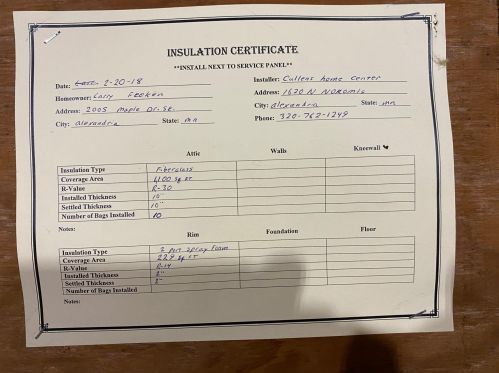 INSULATION CERTIFICATE
**INSTALL NEXT TO SERVICE PANEL**
Date: 2-20-18
Homeowner: Cory Feeken
Address: 2005 Maple Dr. SE.
City: Alexandria State: mn
Installer: Cullens home Center
Address: 1620 N Nokomis
City: Alexandria State: mn
Phone: 320-762-1249
Attic Walls Kneewall
Insulation Type Fiberglass
Coverage Area 1100 Sq FT
R-Value R-30
Installed Thickness 10"
Settled Thickness 10"
Number of Bags Installed 10
Notes:
Rim Foundation Floor
Insulation Type 2 Part Spray Foam
Coverage Area 229 Sq FT
R-Value R-14
Installed Thickness 2"
Settled Thickness 2"
Number of Bags Installed
Notes: